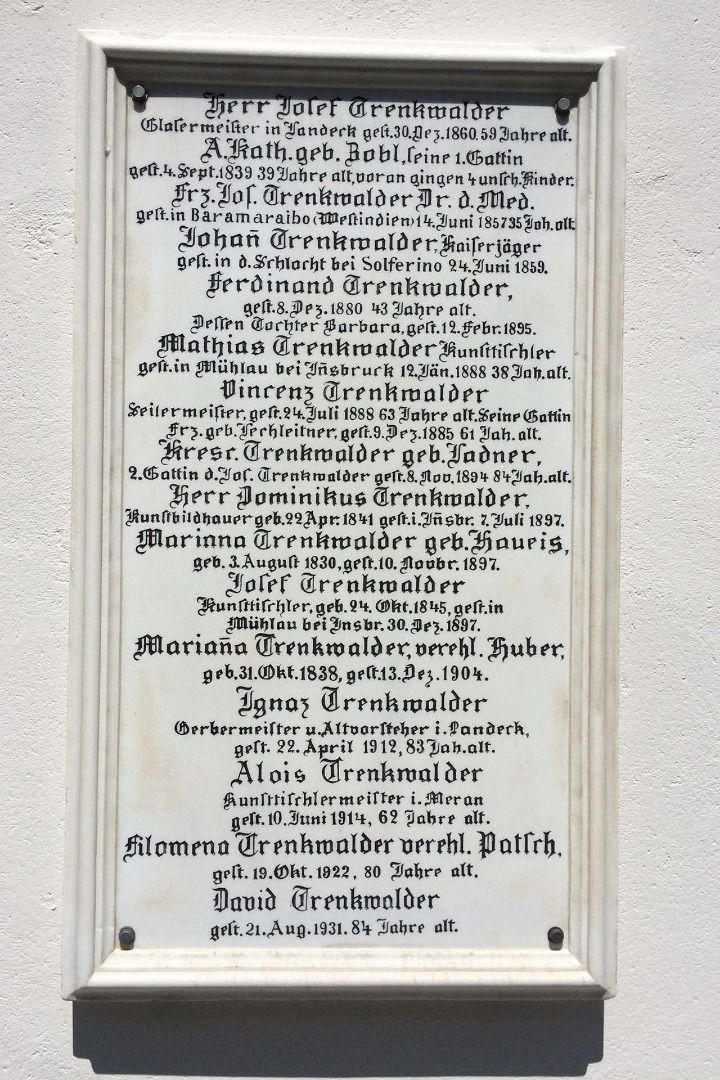 Herr Josef Trenkwalder
Glasermeister in Landeck gest. 30. Dez. 1860 59 Jahre alt.
A. Kath. geb. Zobl, seine 1. Gattin
gest. 4. Sept. 1839 39 Jahre alt, voran gingen 4 unsch. Kinder.
Frz. Jos. Trenkwalder Dr. d. Med.
gest. in Baramaraibo (Westindien) 14. Juni 1857 35 Jah. alt.
Johan̄ Trenkwalder, Kaiserjäger
gest. in d. Schlacht bei Solferino 24. Juni 1859.
Ferdinand Trenkwalder,
gest. 8. Dez. 1880 43 Jahre alt.
Dessen Tochter Barbara, gest. 12. Febr. 1895.
Mathias Trenkwalder Kunsttischler
gest. in Mühlau bei In̄sbruck 12. Jän. 1888 38 Jah. alt.
Vincenz Trenkwalder
Seilermeister, gest. 24. Juli 1888 63 Jahre alt. Seine Gattin
Frz. geb. Lechleitner, gest. 9. Dez. 1885 61 Jah. alt.
Kresc. Trenkwalder geb. Ladner,
2. Gattin d. Jos. Trenkwalder gest. 8. Nov. 1894 84 Jah. alt.
Herr Dominikus Trenkwalder,
Kunstbildhauer geb. 22 Apr. 1841 gest. i. In̄sbr. 7. Juli 1897.
Marianna Trenkwalder geb. Haueis,
geb. 3. August 1830, gest. 10. Novbr. 1897.
Josef Trenkwalder
Kunsttischler, geb. 24. Okt. 1845, gest. in
Mühlau bei Insbr. 30. Dez. 1897.
Marian̄a Trenkwalder, verehl. Huber,
geb. 31. Okt. 1838, gest. 13. Dez. 1904.
Ignaz Trenkwalder
Gerbermeister u. Altvorsteher i. Landeck,
gest. 22. April 1912, 83 Jah. alt.
Alois Trenkwalder
Kunsttischlermeister i. Meran
gest. 10. Juni 1914, 62 Jahre alt.
Filomena Trenkwalder verehl. Patsch,
gest. 19. Okt. 1922, 80 Jahre alt.
David Trenkwalder
gest. 21. Aug. 1931. 84 Jahre alt.